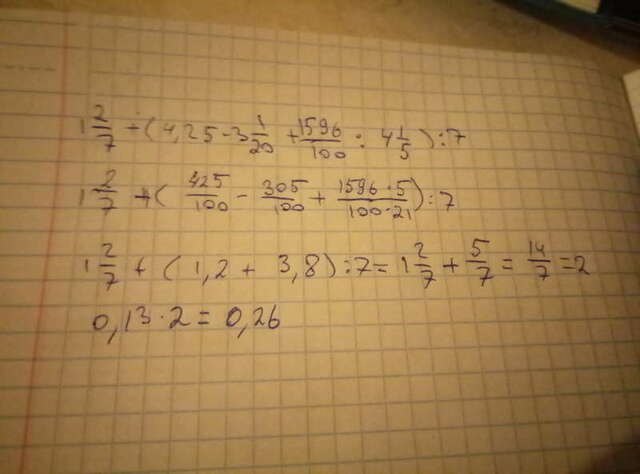 1 2/7 + (4,25 - 3 1/20 + 1596/100 : 4 1/5) : 7
1 2/7 + (425/100 - 305/100 + 1596·5/100·21) : 7
1 2/7 + (1,2 + 3,8) : 7 = 1 2/7 + 5/7 = 14/7 = 2
0,13·2 = 0,26